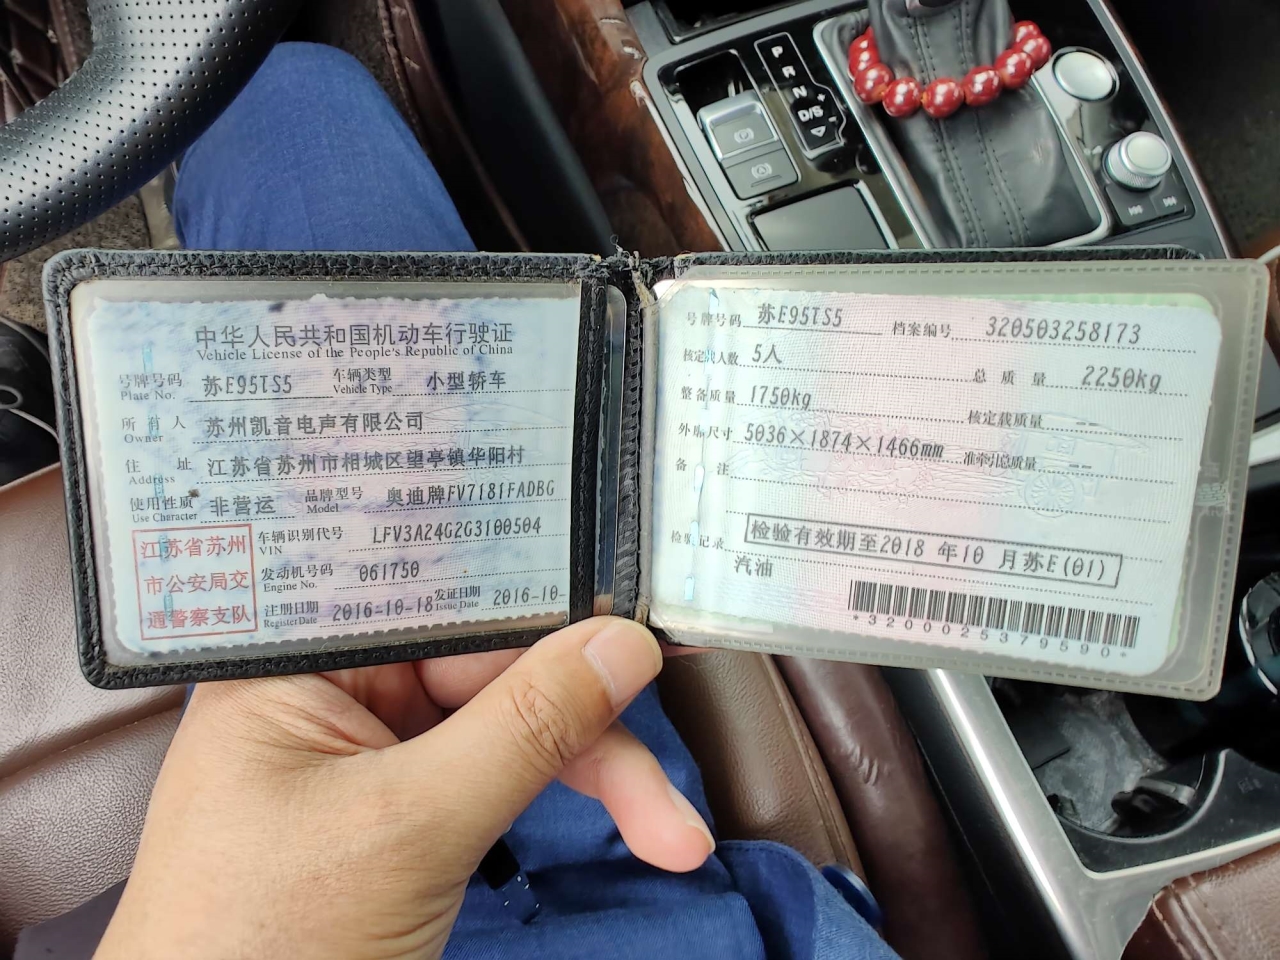 中华人民共和国机动车行驶证
Vehicle License of the People's Republic of China
号牌号码 Plate No. 苏E95TS5 车辆类型 Vehicle Type 小型轿车
所有人 Owner 苏州凯音电声有限公司
住址 Address 江苏省苏州市相城区望亭镇华阳村
使用性质 Use Character 非营运 品牌型号 Model 奥迪牌FV7181FADBG
江苏省苏州
市公安局交
通警察支队
车辆识别代号 VIN LFV3A24G2G3100504
发动机号码 Engine No. 061750
注册日期 Register Date 2016-10-18 发证日期 Issue Date 2016-10-
号牌号码 苏E95TS5 档案编号 320503258173
核定载人数 5人 总质量 2250kg
整备质量 1750kg 核定载质量 --
外廓尺寸 5036×1874×1466mm 准牵引总质量 --
备注
检验记录 检验有效期至2018 年10 月苏E(01)
汽油
*3200025379590*
P
R
N
D/S
+
-